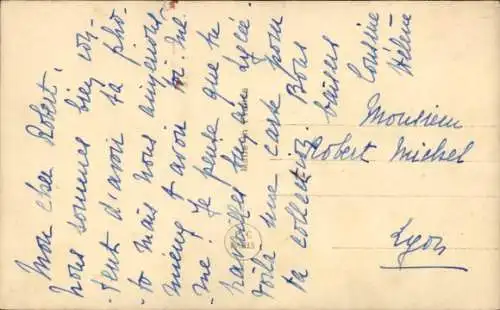 Mon cher Robert,
nous sommes bien con-
tent d'avoir ta pho-
to mais nous aimerions
mieux t'avoir toi-mê-
me! Je pense que tu
travailles bien au Lycée.
Voilà une carte pour
ta collection. Bons
baisers
Cousine
Hélène
Monsieur
Robert Michel
Lyon